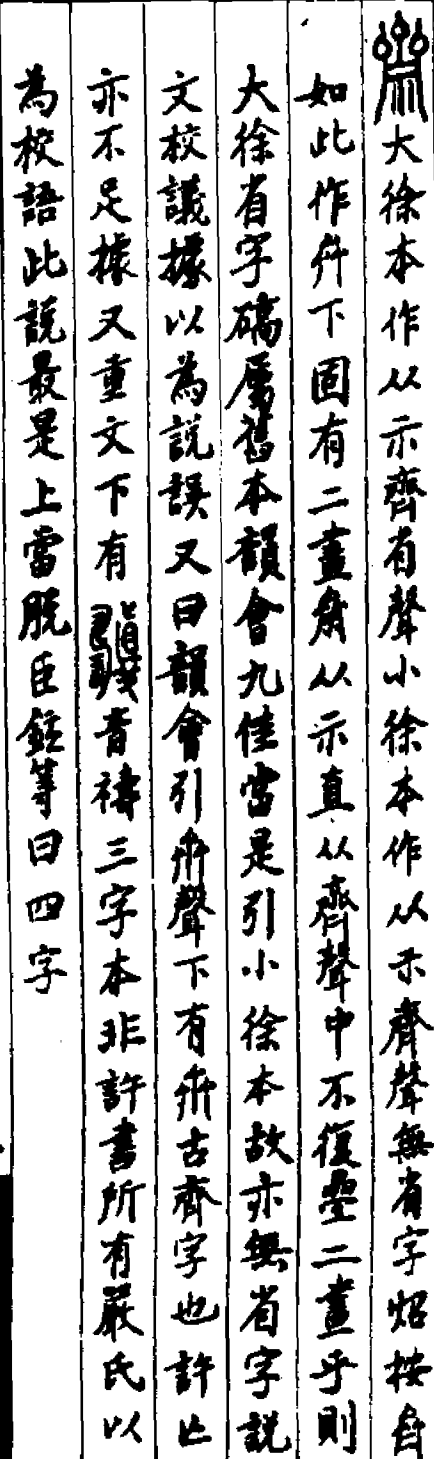 齋大徐本作从示齊省聲小徐本作从示齊聲無省字炤按自
如此作𠫼下固有二畫齋从示直从齊聲中不復疊二畫乎則
大徐省字礄屬舊本韻會九佳當是引小徐本故亦無省字說
文校議據以為說誤又曰韻會引𠫼聲下有𠫼古齊字也許
亦不足據又重文下有音禱三字本非許書所有嚴氏以
為校語此說最是上當脫臣鉉等曰四字